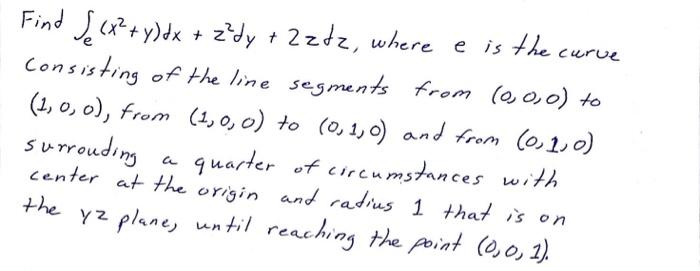 Find ∫_e (x²+y)dx + z²dy + 2zdz, where e is the curve
Consisting of the line segments from (0,0,0) to
(1,0,0), from (1,0,0) to (0,1,0) and from (0,1,0)
surrouding a quarter of circumstances with
center at the origin and radius 1 that is on
the yz plane, until reaching the point (0,0,1).